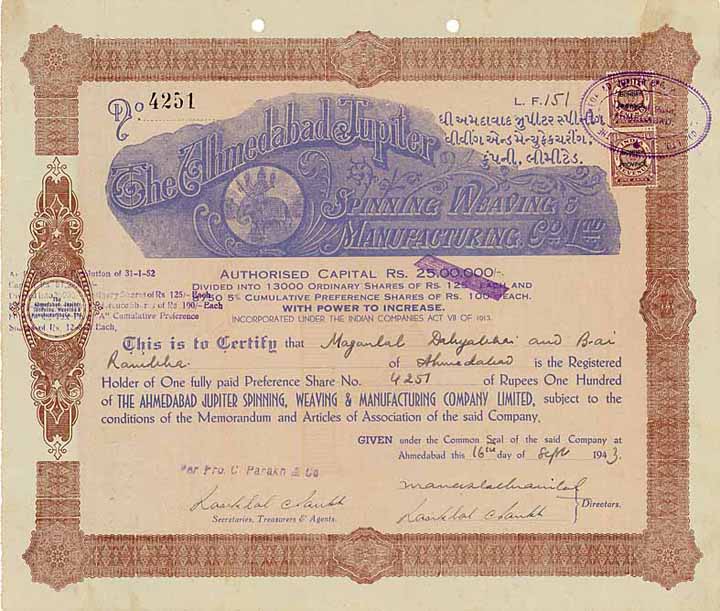 No 4251
L. F. 151
ધી અમદાવાદ જુપીટર સ્પીનીંગ
વીવીંગ એન્ડ મેન્યુફેકચરીંગ
કંપની, લીમીટેડ.
The Ahmedabad Jupiter
Spinning Weaving &
Manufacturing Co Ltd
AUTHORISED CAPITAL RS. 25,00,000/-.
DIVIDED INTO 13000 ORDINARY SHARES OF RS 125 EACH AND
5% CUMULATIVE PREFERENCE SHARES OF RS. 100 EACH.
WITH POWER TO INCREASE.
INCORPORATED UNDER THE INDIAN COMPANIES ACT VII OF 1913.
of 31-1-52
Shares of Rs 125/- Each
of Rs 100/- Each
"A" Cumulative Preference
of Rs. Each,
The
Ahmedabad Jupiter
Spinning, Weaving &
Manufacturing
This is to Certify that Maganlal Dahyabhai and Bai
of Ahmedabad is the Registered
Holder of One fully paid Preference Share No. 4251 of Rupees One Hundred
of THE AHMEDABAD JUPITER SPINNING, WEAVING & MANUFACTURING COMPANY LIMITED, subject to the
conditions of the Memorandum and Articles of Association of the said Company.
GIVEN under the Common Seal of the said Company at
Ahmedabad this 16th day of Sept 1943.
Per Pro. C Parakh & Co
Secretaries, Treasurers & Agents.
Directors.